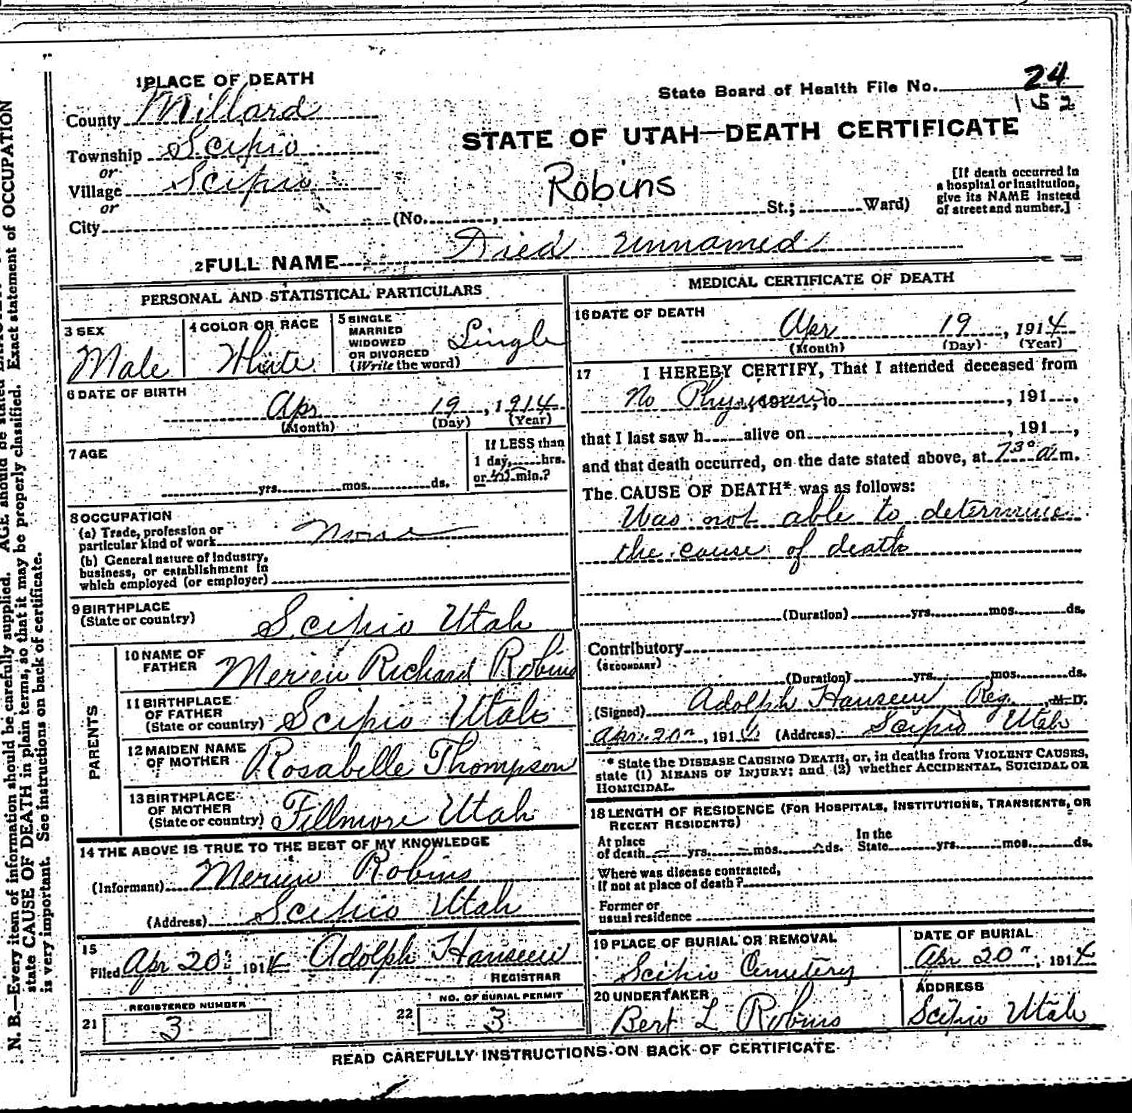 1 PLACE OF DEATH
County Millard
Township Scipio
or
Village Scipio
or
City
State Board of Health File No. 24
152
STATE OF UTAH—DEATH CERTIFICATE
Robins
(No. , St.; Ward)
[If death occurred in a hospital or institution, give its NAME instead of street and number.]
2 FULL NAME Died unnamed
PERSONAL AND STATISTICAL PARTICULARS
3 SEX
Male
4 COLOR OR RACE
White
5 SINGLE MARRIED WIDOWED OR DIVORCED (Write the word) Single
6 DATE OF BIRTH
Apr 19, 1914
(Month) (Day) (Year)
7 AGE
yrs. mos. ds.
If LESS than
1 day, hrs.
or min.?
8 OCCUPATION
(a) Trade, profession or
particular kind of work None
(b) General nature of industry,
business, or establishment in
which employed (or employer)
9 BIRTHPLACE
(State or country) Scipio Utah
PARENTS
10 NAME OF
FATHER Richard Robins
11 BIRTHPLACE
OF FATHER
(State or country) Scipio Utah
12 MAIDEN NAME
OF MOTHER Rosabelle Thompson
13 BIRTHPLACE
OF MOTHER
(State or country) Fillmore Utah
14 THE ABOVE IS TRUE TO THE BEST OF MY KNOWLEDGE
(Informant) Robins
(Address) Scipio Utah
15
Filed Apr 20 1914 Adolph Hansen
REGISTRAR
21 REGISTERED NUMBER
3
22 NO. OF BURIAL PERMIT
3
MEDICAL CERTIFICATE OF DEATH
16 DATE OF DEATH
Apr 19, 1914
(Month) (Day) (Year)
17 I HEREBY CERTIFY, That I attended deceased from
No Physician, to , 191 ,
that I last saw h alive on , 191 ,
and that death occurred, on the date stated above, at 7 30 a m.
The CAUSE OF DEATH* was as follows:
Was not able to determine
the cause of death
(Duration) yrs. mos. ds.
Contributory
(SECONDARY)
(Duration) yrs. mos. ds.
(Signed) Adolph Hansen Reg. M. D.
Apr 20", 1914 (Address) Scipio Utah
* State the DISEASE CAUSING DEATH, or, in deaths from VIOLENT CAUSES,
state (1) MEANS OF INJURY; and (2) whether ACCIDENTAL, SUICIDAL OR
HOMICIDAL.
18 LENGTH OF RESIDENCE (FOR HOSPITALS, INSTITUTIONS, TRANSIENTS, OR
RECENT RESIDENTS)
At place of death yrs. mos. ds. In the State yrs. mos. ds.
Where was disease contracted,
if not at place of death?
Former or
usual residence
19 PLACE OF BURIAL OR REMOVAL
Scipio Cemetery
DATE OF BURIAL
Apr 20", 1914
20 UNDERTAKER
Bert L Robins
ADDRESS
Scipio Utah
READ CAREFULLY INSTRUCTIONS ON BACK OF CERTIFICATE
N. B.—Every item of information should be carefully supplied. AGE should be stated
state CAUSE OF DEATH in plain terms, so that it may be properly classified. Exact statement of OCCUPATION
is very important. See instructions on back of certificate.